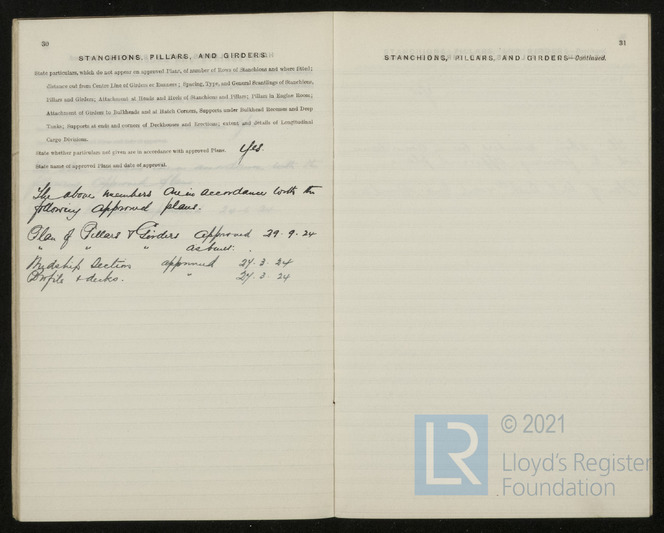 30
STANCHIONS, PILLARS, AND GIRDERS.
State particulars, which do not appear on approved Plans, of number of Rows of Stanchions and where fitted;
distance out from Centre Line of Girders or Runners; Spacing, Type, and General Scantlings of Stanchions,
Pillars and Girders; Attachment at Heads and Heels of Stanchions and Pillars; Pillars in Engine Room;
Attachment of Girders to Bulkheads and at Hatch Corners, Supports under Bulkhead Recesses and Deep
Tanks; Supports at ends and corners of Deckhouses and Erections; extent and details of Longitudinal
Cargo Divisions.
State whether particulars not given are in accordance with approved Plans. Yes.
State name of approved Plans and date of approval.
The above members are in accordance with the
following approved plans.
Plan of Pillars & Girders approved 29.9.24
" " " as built.
Midship Section approved 27.3.24
Profile & decks. " 27.3.24
31
STANCHIONS, PILLARS, AND GIRDERS—Continued.
© 2021
LR
Lloyd's Register
Foundation